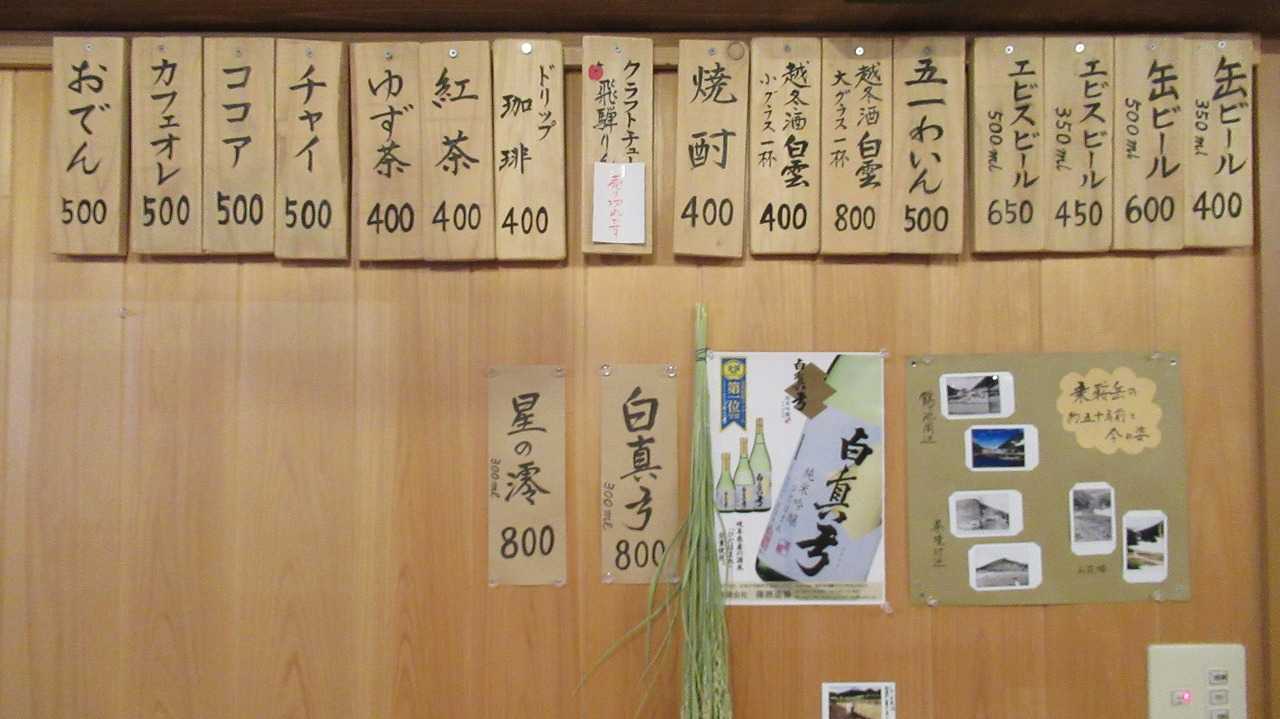 缶ビール
350ml
400
缶ビール
500ml
600
エビスビール
350ml
450
エビスビール
500ml
650
五一わいん
500
越冬酒 白雲
大グラス一杯
800
越冬酒 白雲
小グラス一杯
400
焼酎
400
クラフトチュー
飛騨り
売り切れです
ドリップ
珈琲
400
紅茶
400
ゆず茶
400
チャイ
500
ココア
500
カフェオレ
500
おでん
500
乗鞍岳の
約五十年前と
今の姿
白真弓
第一位
白真弓
純米吟醸
白真弓
300ml
800
星の澪
300ml
800